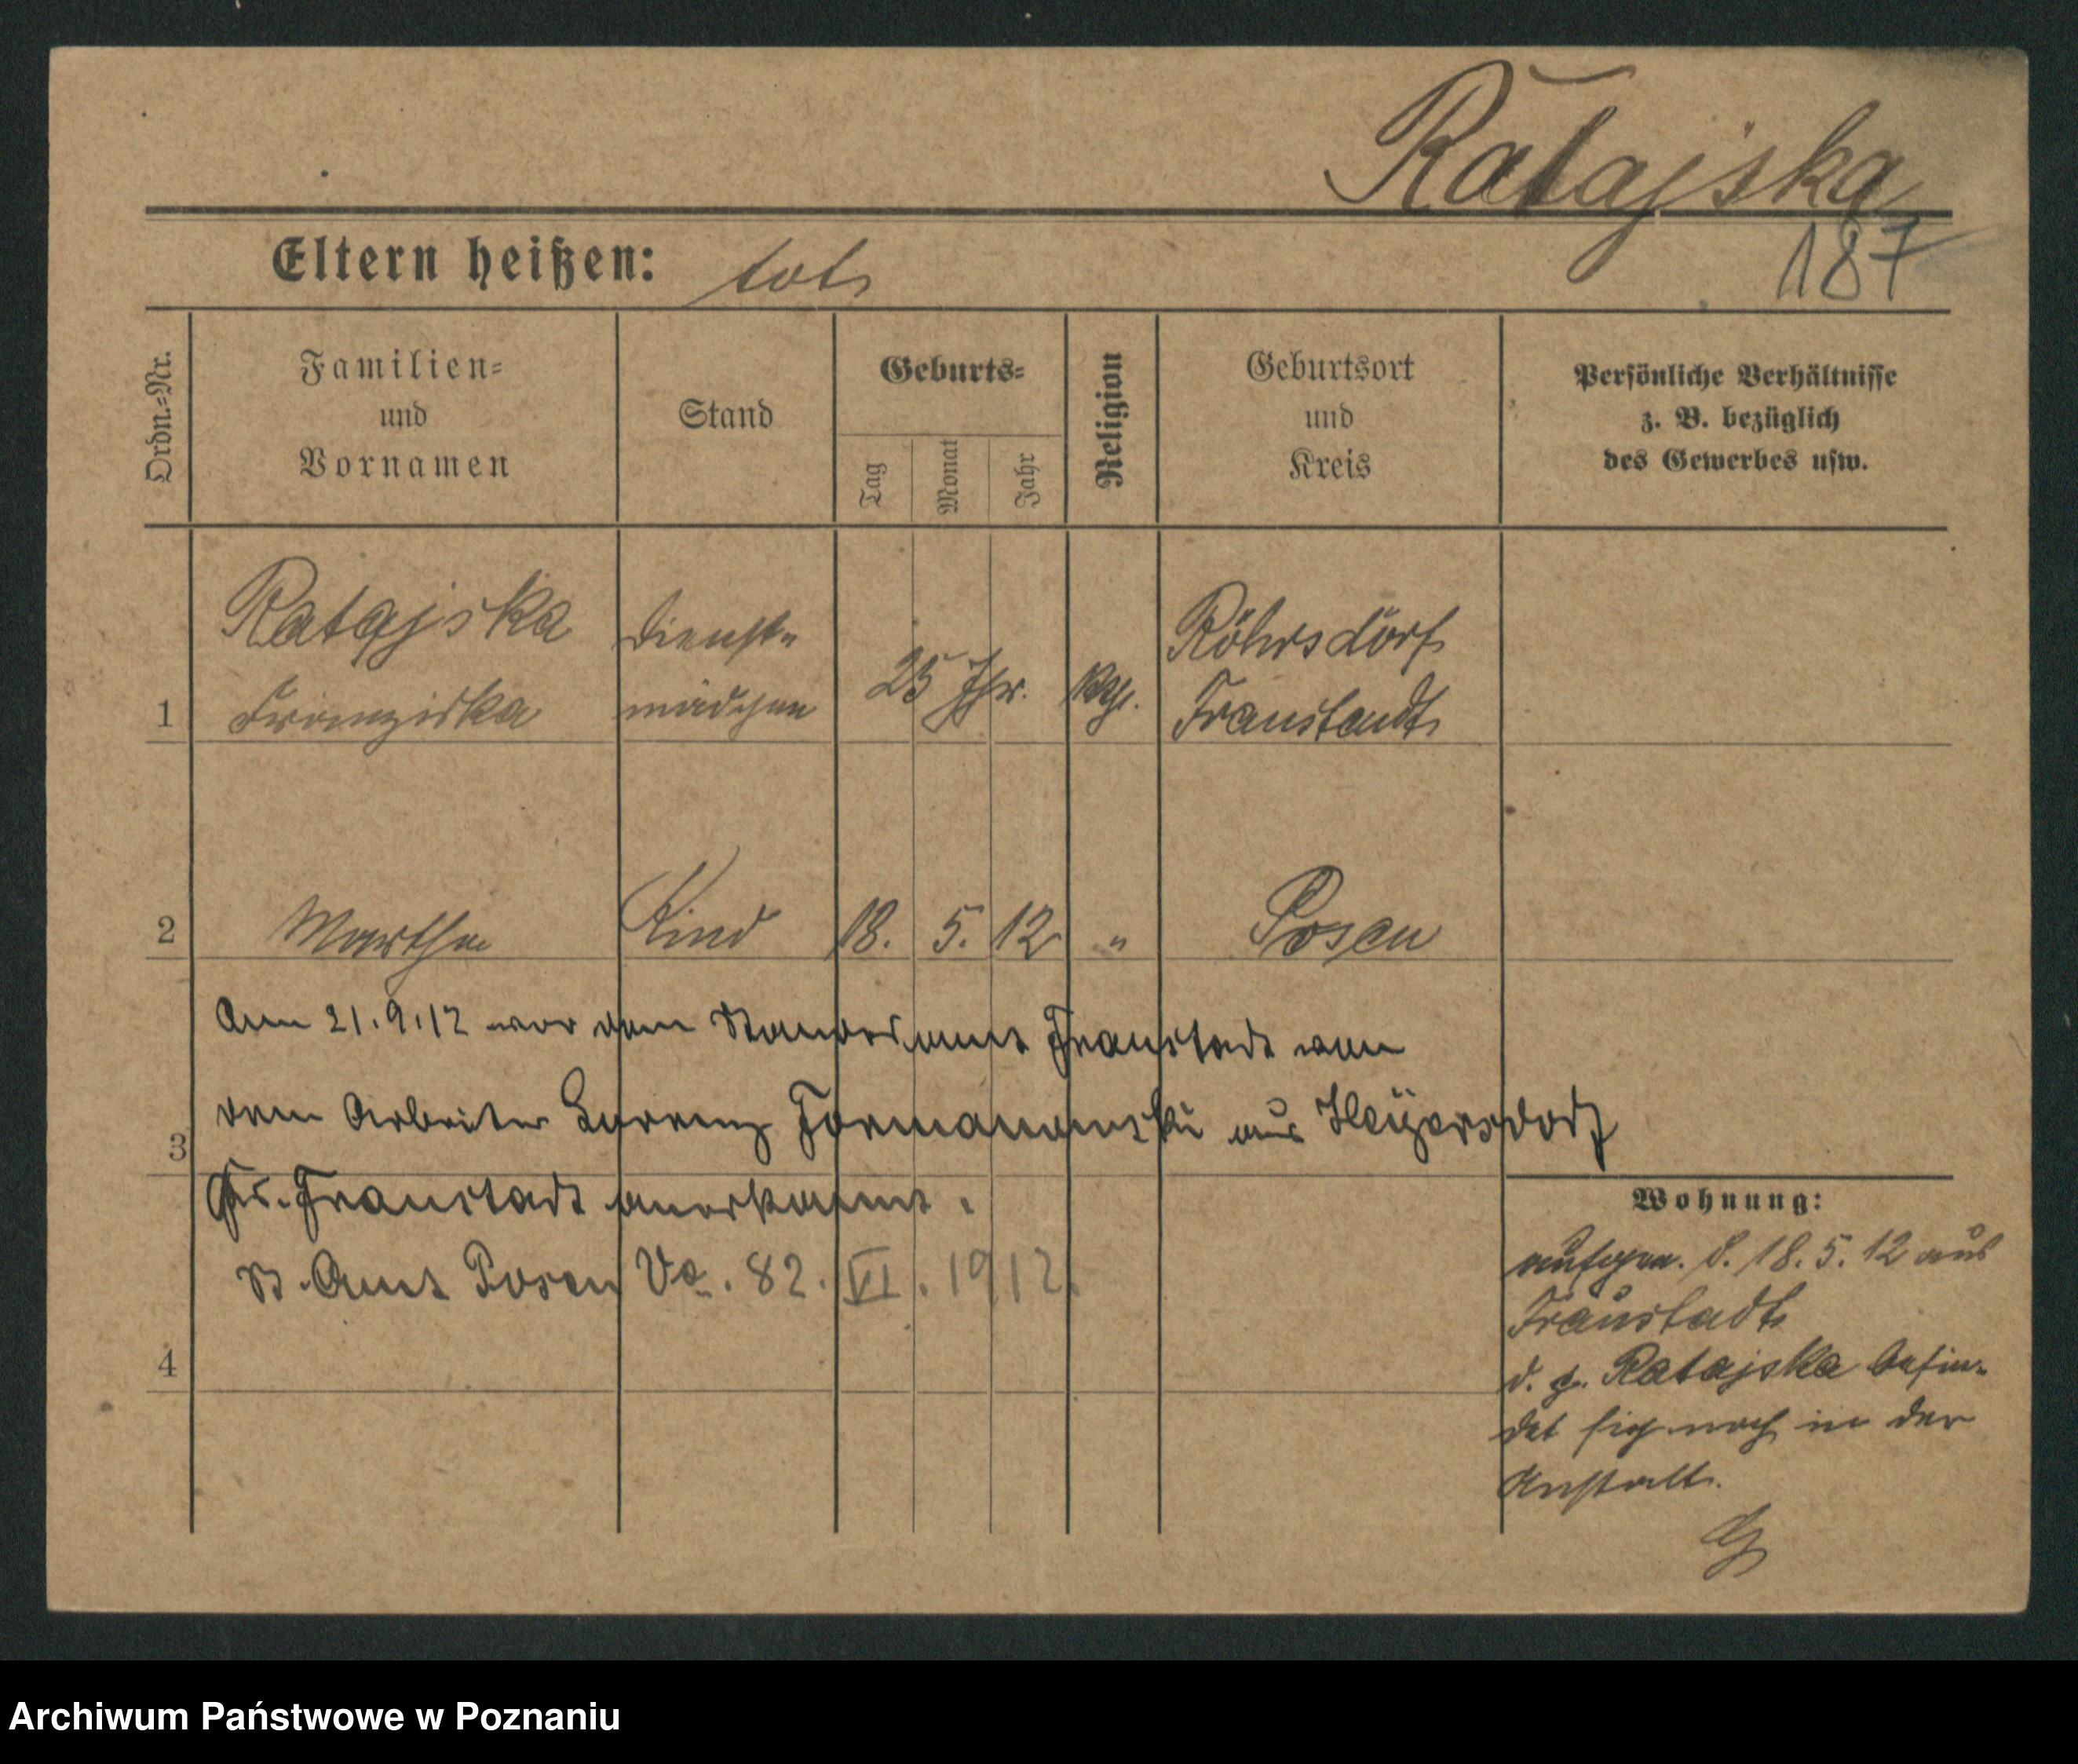 Ratajska
187
Eltern heißen: tot
Ordn.=Nr.
Familien=
und
Vornamen
Stand
Geburts=
Tag
Monat
Jahr
Religion
Geburtsort
und
Kreis
Persönliche Verhältnisse
z. B. bezüglich
des Gewerbes usw.
1 Ratajska Franziska
Dienst=
mädchen
25 Jhr.
kth.
Röhrsdorf
Fraustadt
2 Martha Kind 18. 5. 12 " Posen
Am 21.9.12 vor dem Standesamt Fraustadt von
dem Arbeiter Lorenz aus Heyersdorf
3
Kr. Fraustadt anerkannt.
St. Amt Posen Va. 82. VI. 1912.
4
Wohnung:
18. 5. 12 aus
Fraustadt
d. p. Ratajska befin=
det sich noch in der
Anstalt.
Archiwum Państwowe w Poznaniu